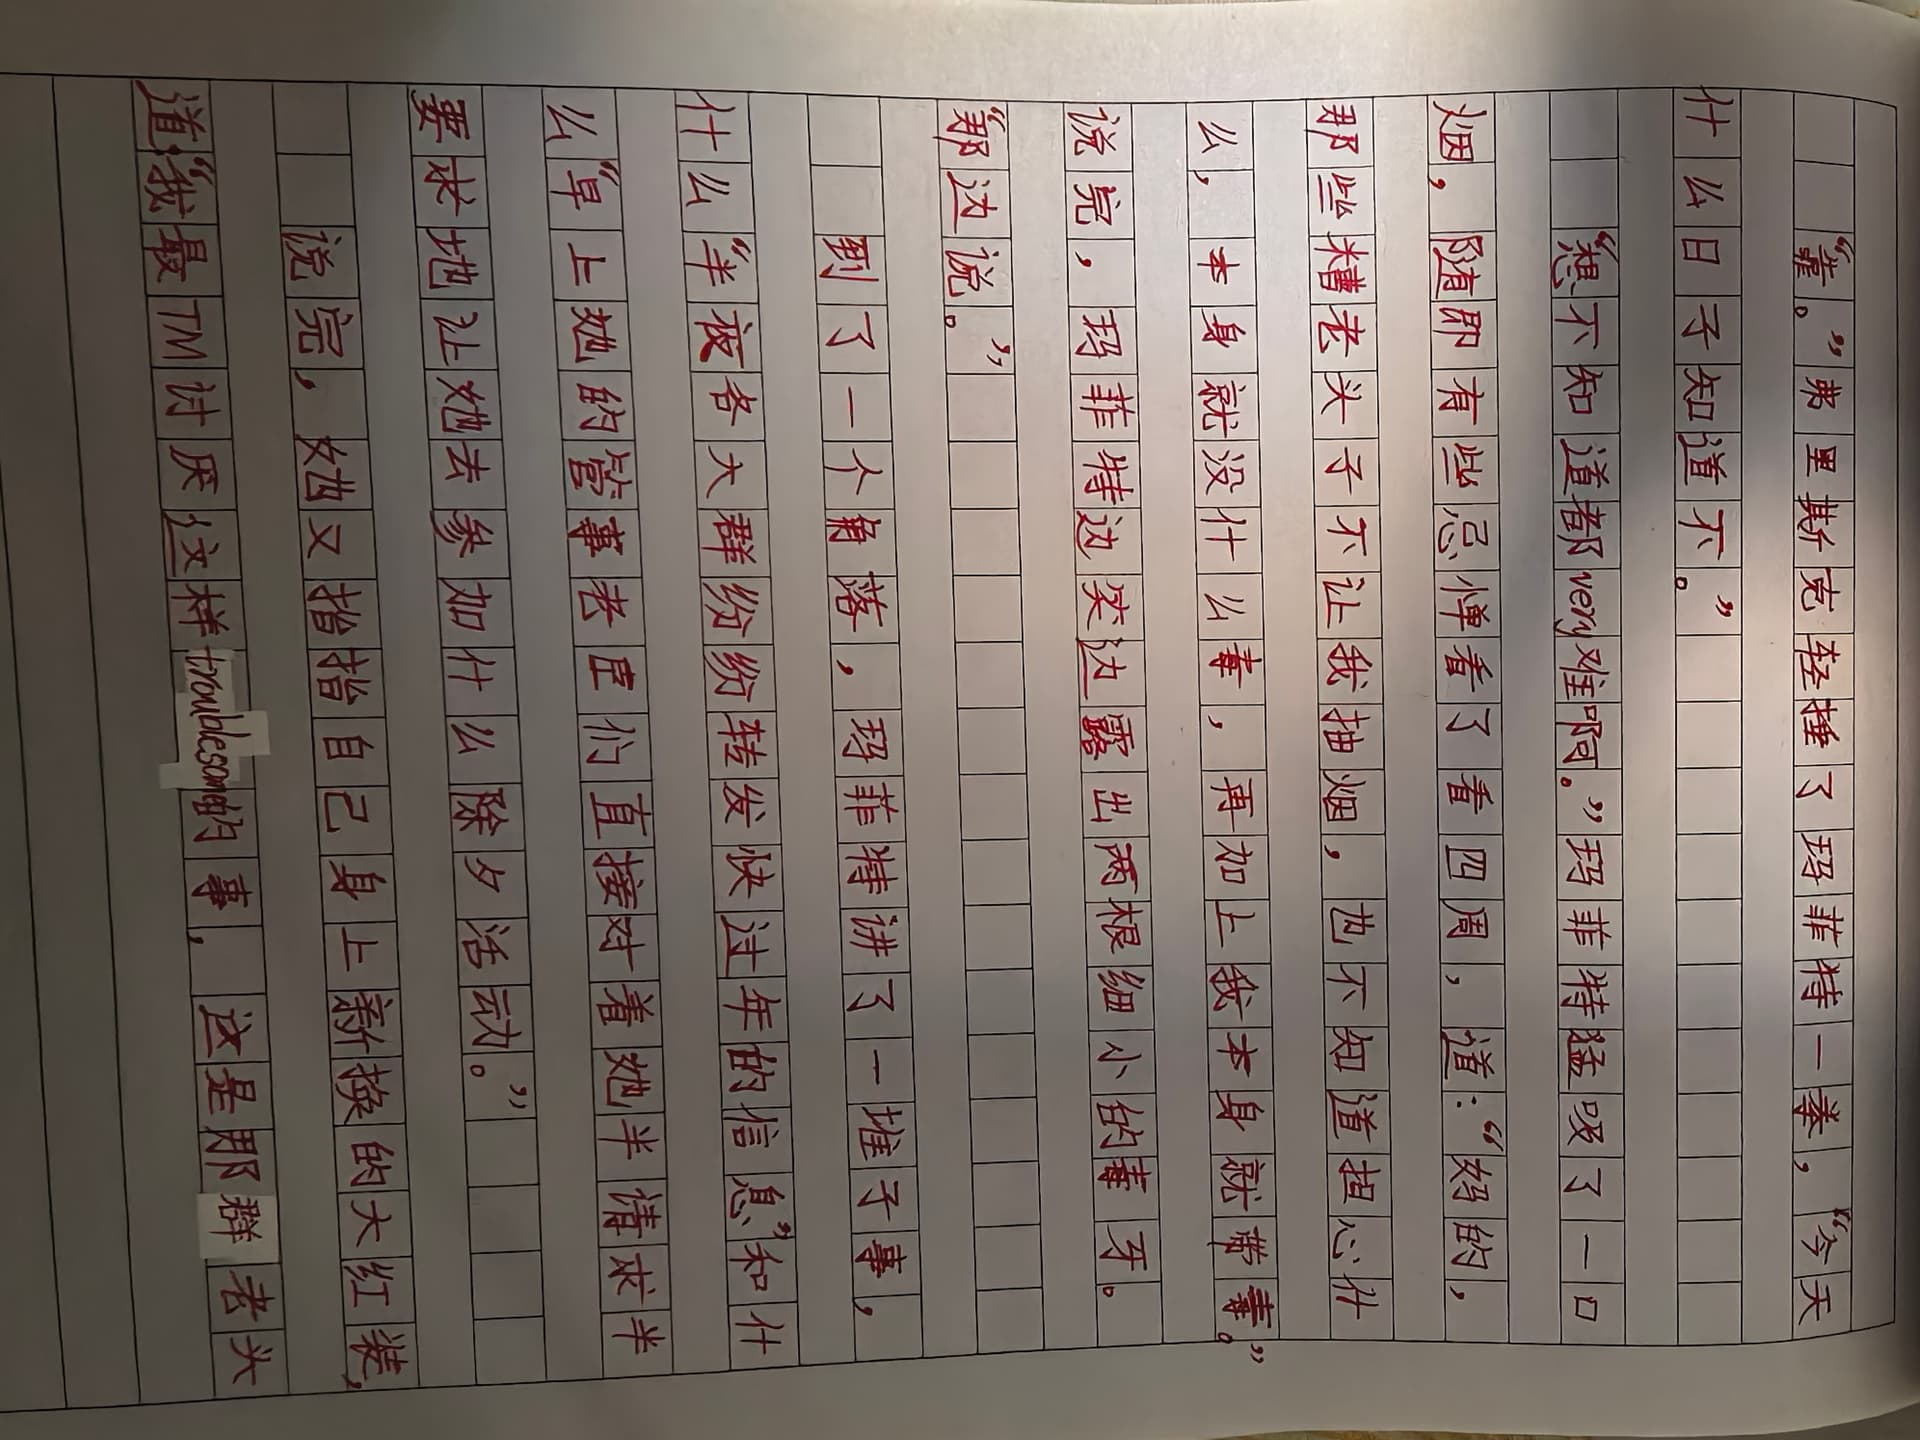 “靠。”弗里斯克轻捶了玛菲特一拳，“今天
什么日子知道不。”
“想不知道都very难啊。”玛菲特猛吸了一口
烟，随即有些忌惮看了看四周，道：“妈的，
那些糟老头子不让我抽烟，也不知道担心什
么，本身就没什么毒，再加上我本身就带毒。”
说完，玛菲特边笑边露出两根细小的毒牙。
“那边说。”
到了一个角落，玛菲特讲了一堆子事，
什么“半夜各大群纷纷转发快过年的信息”和什
么“早上她的管事老臣们直接对着她半请求半
要求地让她去参加什么除夕活动。”
说完，她又指指自己身上新换的大红装，
道：“我最TM讨厌这样troublesome的事，这是那群老头